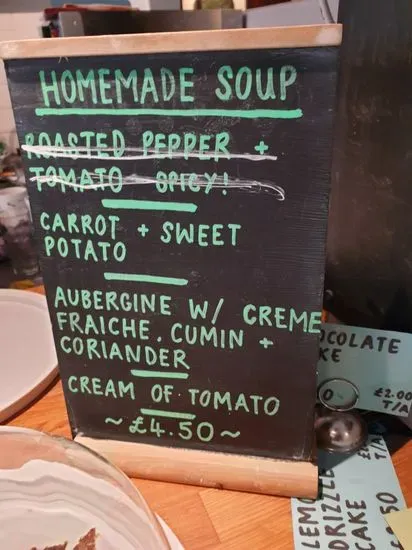 HOMEMADE SOUP
ROASTED PEPPER +
TOMATO SPICY!
CARROT + SWEET
POTATO
AUBERGINE W/ CREME
FRAICHE, CUMIN +
CORIANDER
CREAM OF TOMATO
~£4.50~
OCOLATE
KE
£2.00
T/A
LEMO
DRIZZLE
CAKE
50